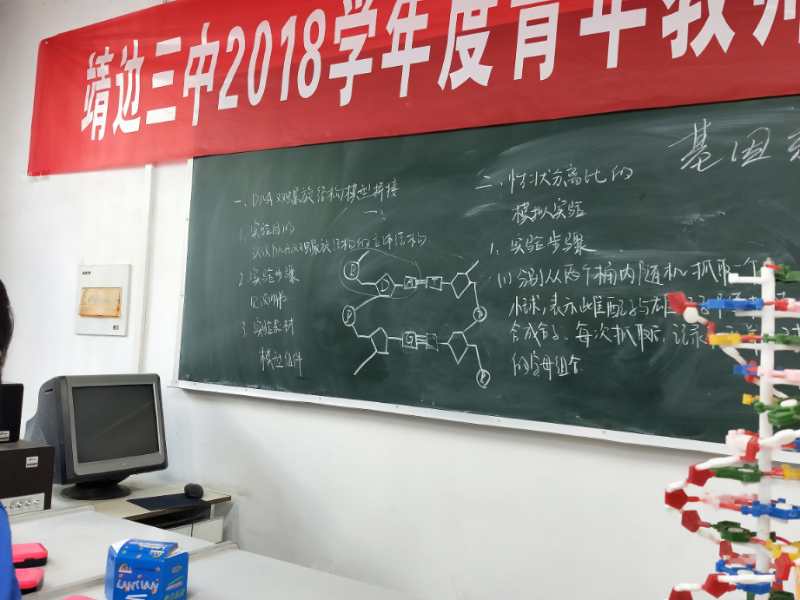 靖边三中2018学年度青年教
基因
一、DNA双螺旋结构模型拼接
1. 实验目的
DNA双螺旋结构的立体结构
2. 实验步骤
3. 实验器材
模型组件
P
D
P
G
P
二、性状分离比的
模拟实验
1. 实验步骤
(1) 分别从两个桶内随机抓取一个
小球,表示雌配子与雄
合成合子、每次抓取后,记录
的字母组合